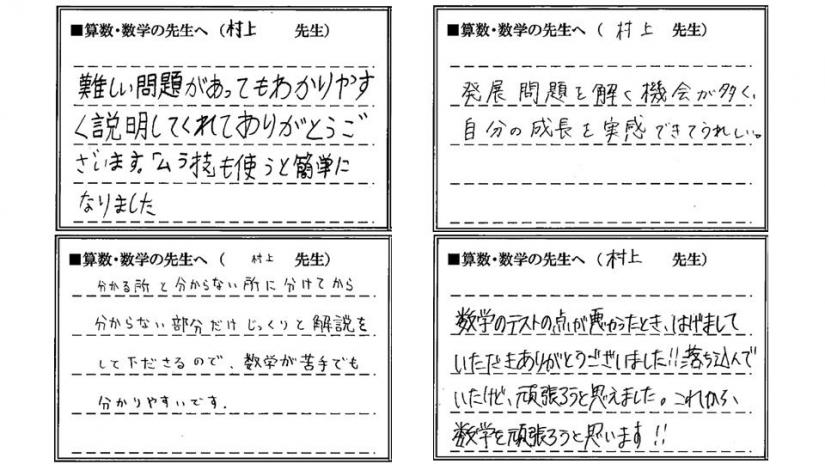 ■算数・数学の先生へ（村上　先生）
難しい問題があってもわかりやす
く説明してくれてありがとうご
ざいます。「ムラ技」も使うと簡単に
なりました
■算数・数学の先生へ（村上　先生）
発展問題を解く機会が多く、
自分の成長を実感できてうれしい。
■算数・数学の先生へ（村上　先生）
分かる所と分からない所に分けてから
分からない部分だけじっくりと解説を
して下ださるので、数学が苦手でも
分かりやすいです。
■算数・数学の先生へ（村上　先生）
数学のテストの点が悪かったとき、はげまして
いただきありがとうございました!!落ち込んで
いたけど、頑張ろうと思えました。これからも、
数学を頑張ろうと思います!!